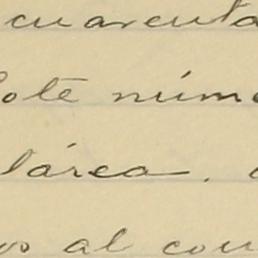 cuarenta
lote núme
lárea.
os al con